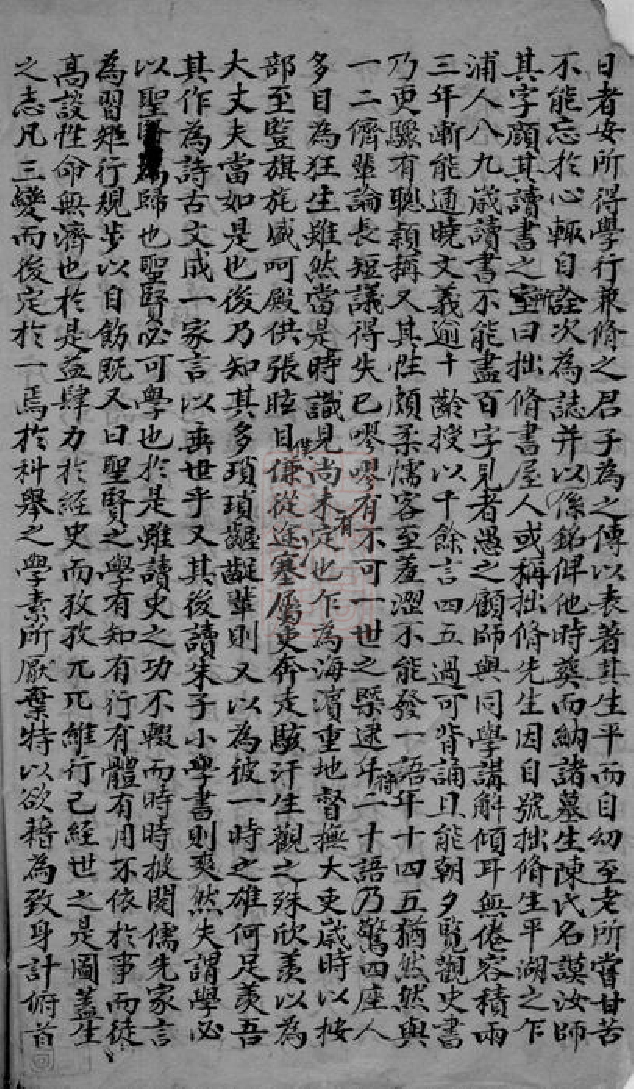 日者毋所得學行兼脩之君子為之傳以表著其生平而自幼至老所嘗甘苦
不能忘於心輒自詮次為誌并以係銘俾他時葬而納諸墓生陳氏名謨汝師
其字顔其讀書之室曰拙脩書屋人或稱拙脩先生因自號拙脩生平湖之乍
浦人八九歲讀書不能盡百字見者愚之顧師與同學講解傾耳無倦容積兩
三年漸能通曉文義逾十齡授以千餘言四五過可背誦且能朝夕覽觀史書
乃更驟有聰穎稱又其性頗柔懦客至羞澀不能發一語年十四五猶然然與
一二儕輩論長短議得失已嘐嘐有不可一世之槩逮年二十語乃驚四座人
多目為狂生雖然當是時識見尚未有定也乍為海濱重地督撫大吏歲時以按
部至豎旗旄盛呵殿供張眩目傔從塗塞屬吏奔走駭汗生觀之殊欣羨以為
大丈夫當如是也後乃知其多瑣瑣齷齪輩則又以為彼一時之雄何足羨吾
其作為詩古文成一家言以垂世乎又其後讀朱子小學書則爽然夫謂學必
以聖賢為歸也聖賢必可學也於是雖讀史之功不輟而時時披閱儒先家言
為習矩行規步以自飭既又曰聖賢之學有知有行有體有用不依於事而徒
高談性命無濟也於是益肆力於經史而孜孜兀兀維行己經世之是圖蓋生
之志凡三變而後定於一焉於科舉之學素所厭棄特以欲藉為致身計俯首